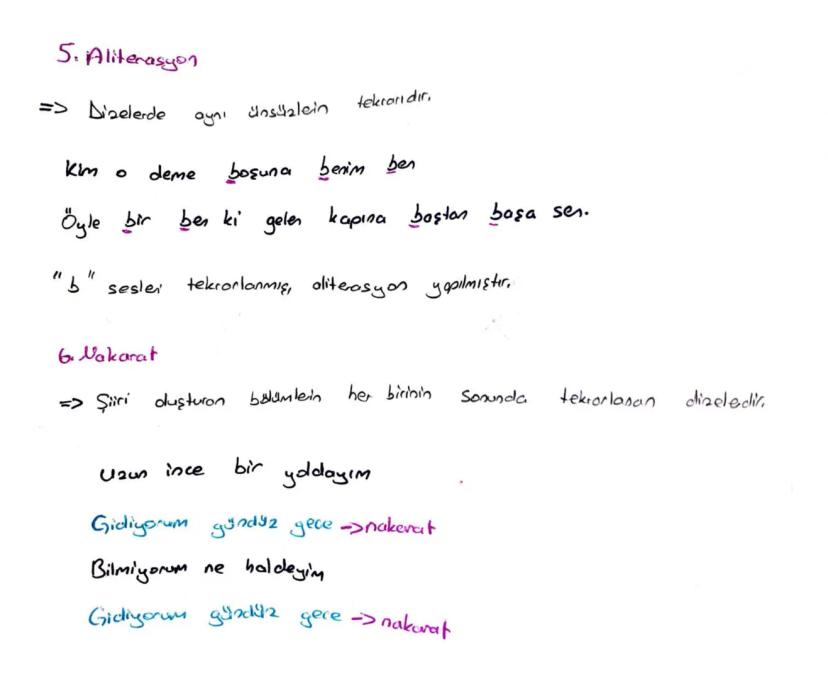 5. Aliterasyon
=> Dizelerde aynı ünsüzlein tekrarıdır.
Kim o deme boşuna benim ben
Öyle bir ben ki gelen kapına boştan boşa sen.
"b" sesleri tekrarlanmış, aliterasyon yapılmıştır.
6. Nakarat
=> Şiiri oluşturan bölümlein her birinin sonunda tekrarlanan dizeledir.
Uzun ince bir yoldayım
Gidiyorum gündüz gece -> nakarat
Bilmiyorum ne haldeyim
Gidiyorum gündüz gece -> nakarat